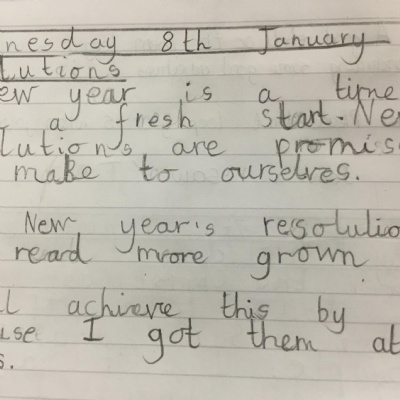 nesday 8th January
lutions
ew year is a time
a fresh start. Ne
lutions are promis
make to ourselves.
New year's resolutio
read more grown
l achieve this by
use I got them at
s.